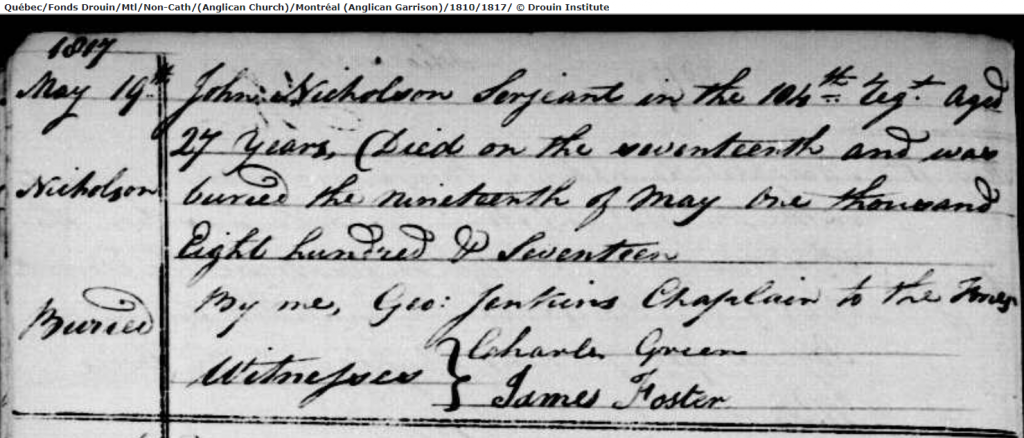 Québec/Fonds Drouin/Mtl/Non-Cath/(Anglican Church)/Montréal (Anglican Garrison)/1810/1817/ © Drouin Institute
1817
May 19th John Nicholson Serjeant in the 104th Regt. Aged
27 Years, (Died on the seventeenth and was
Nicholson buried the nineteenth of May One thousand
Eight hundred & Seventeen
Buried By me, Geo: Jenkins Chaplain to the Forces
Witnesses { Charles Green
James Foster